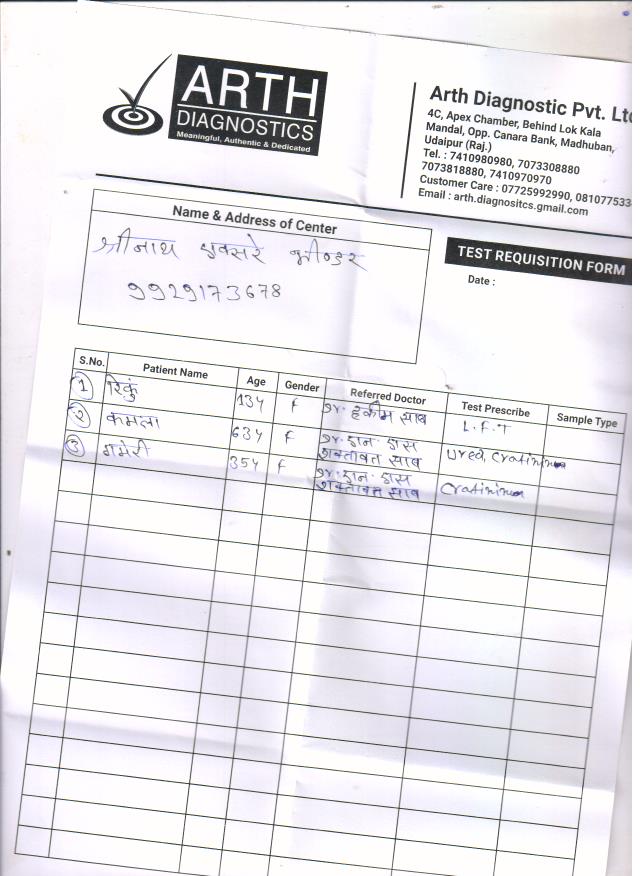 ARTH
DIAGNOSTICS
Meaningful, Authentic & Dedicated
Arth Diagnostic Pvt. Ltd
4C, Apex Chamber, Behind Lok Kala
Mandal, Opp. Canara Bank, Madhuban,
Udaipur (Raj.)
Tel. : 7410980980, 7073308880
7073818880, 7410970970
Customer Care : 07725992990, 081077533
Email : arth.diagnositcs.gmail.com
Name & Address of Center
श्रीनाथ एक्सरे भीण्डर
9929173678
TEST REQUISITION FORM
Date :
S.No. Patient Name Age Gender Referred Doctor Test Prescribe Sample Type
1 रिंकु 13Y F Dr. हकीम साब L.F.T
2 कमला 63Y F Dr. ज्ञान शक्तावत साब Urea, Cratinine
3 गमेरी 35Y F Dr. शक्तावत साब Cratinine